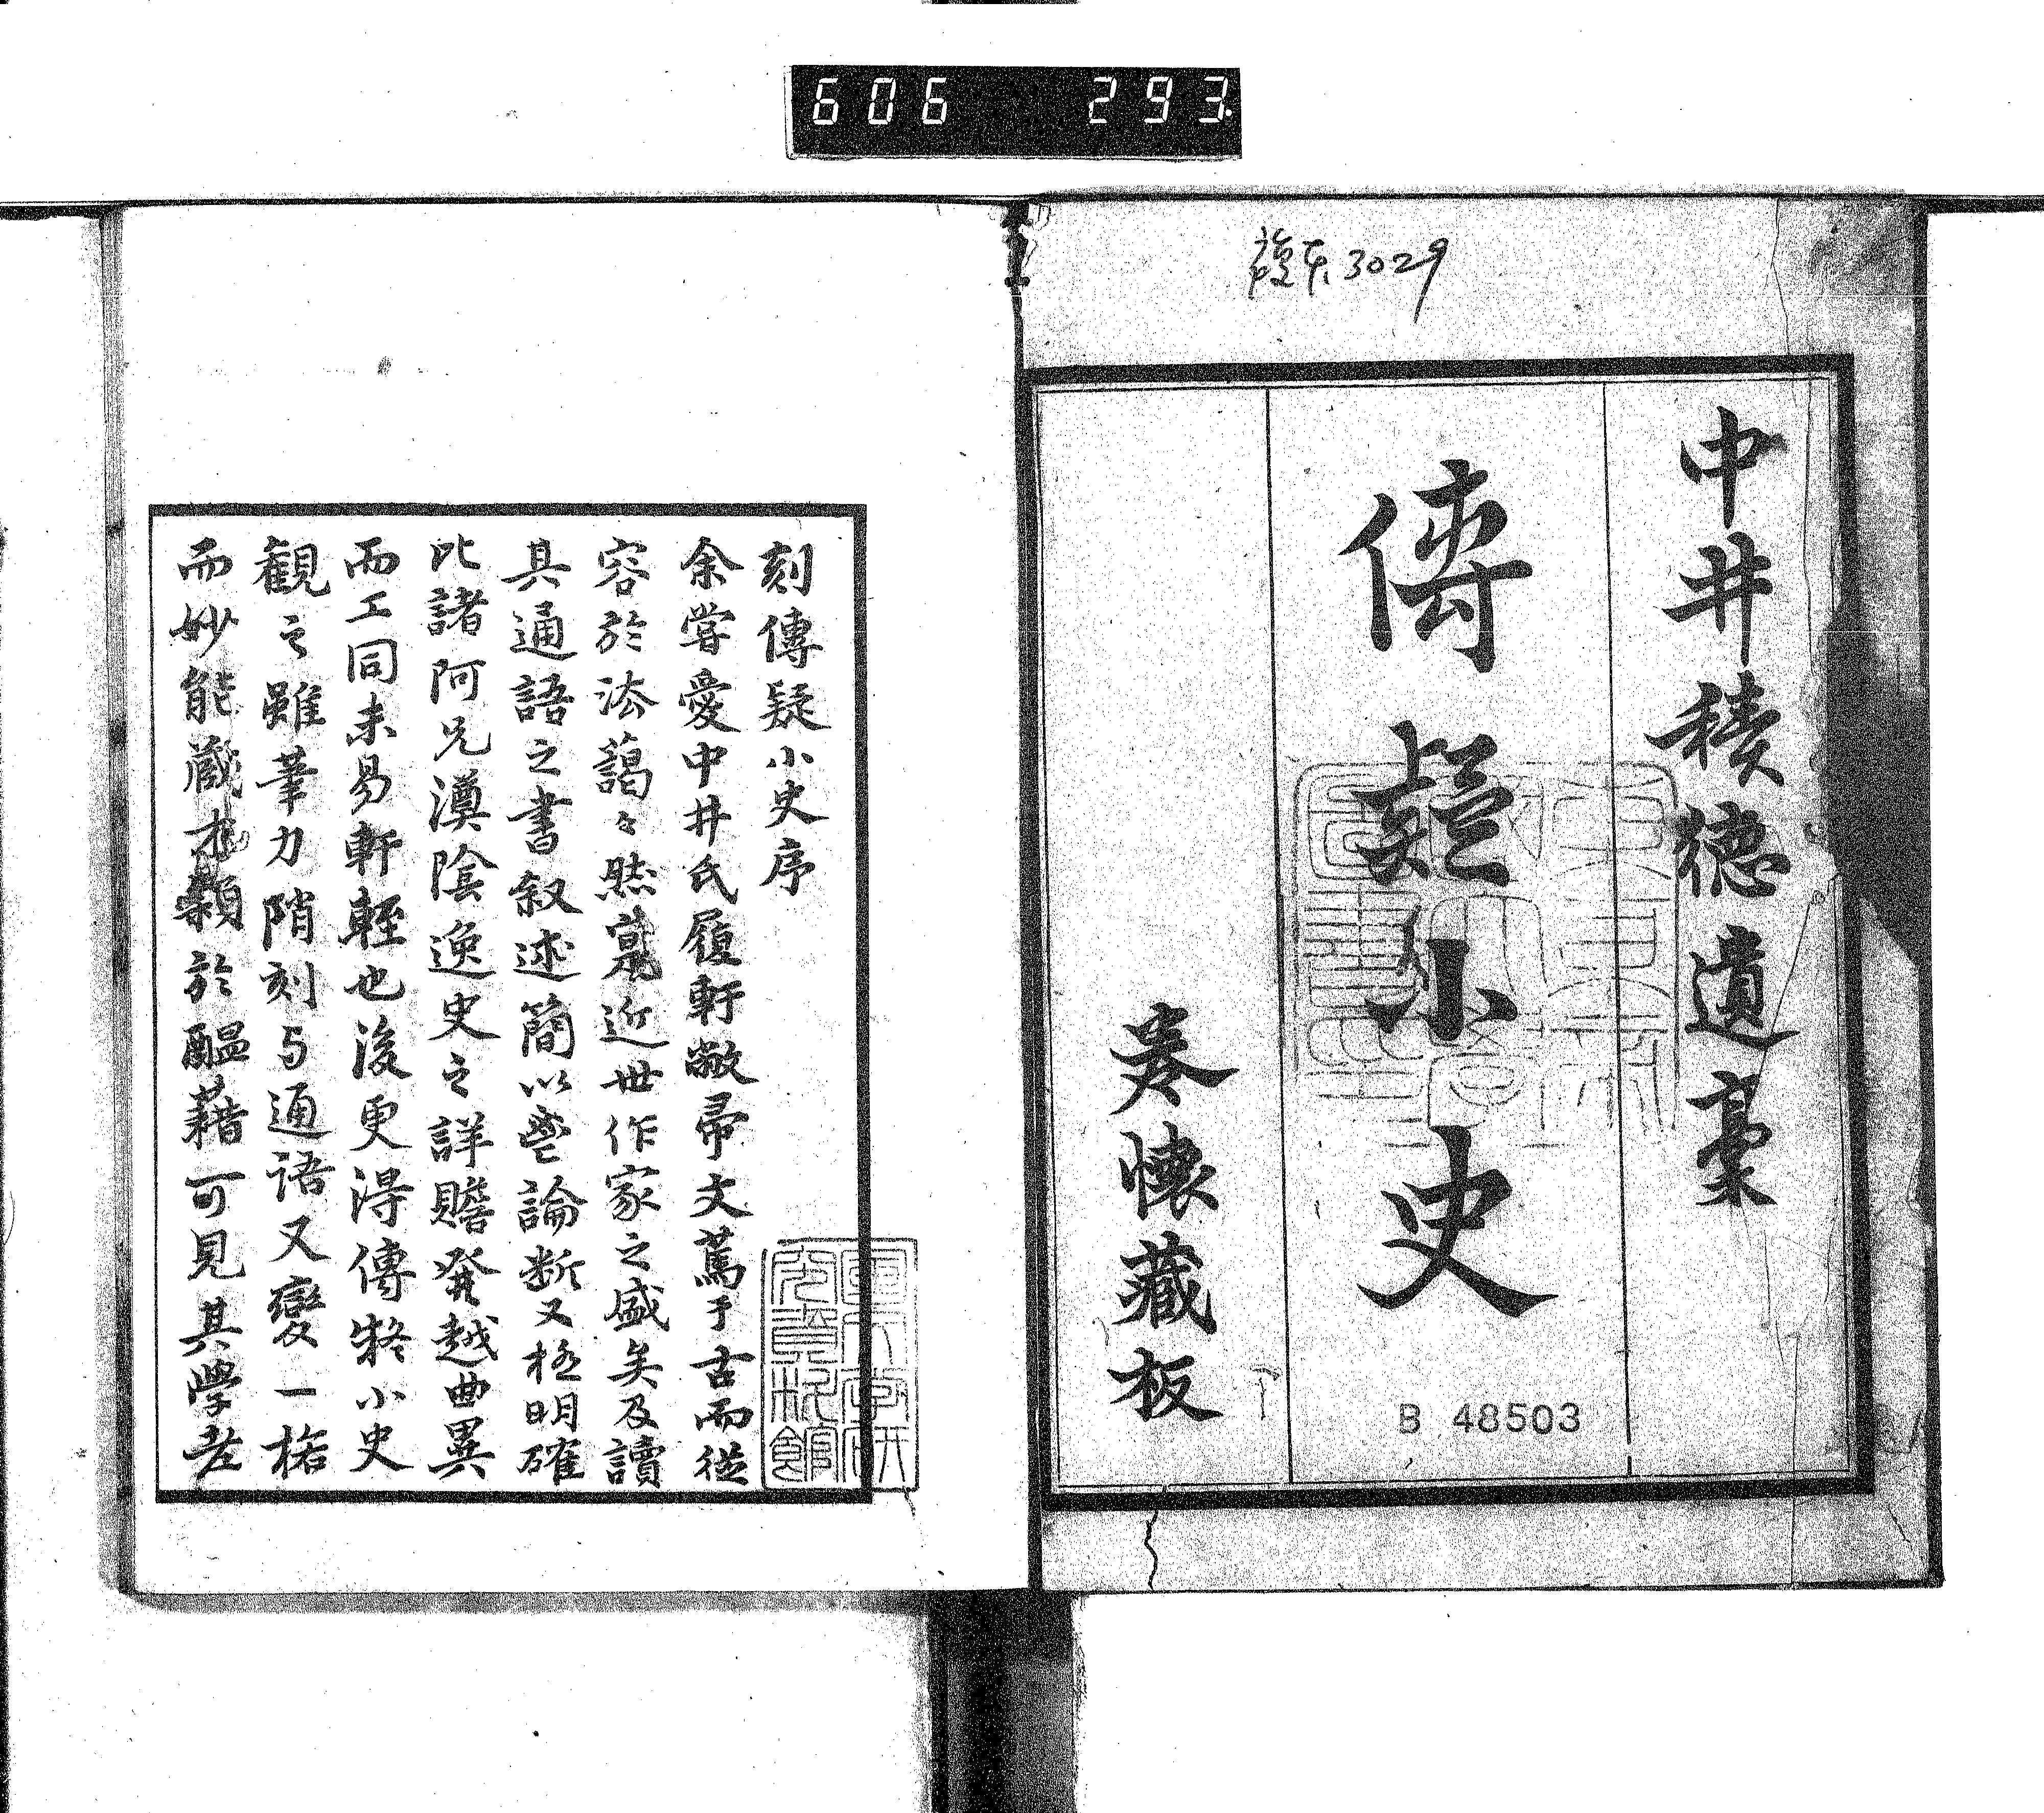 606 293
復本 3029
中井積德遺稾
傳疑小史
懷藏板
B 48503
刻傳疑小史序
余嘗愛中井氏履軒敝帚文蔦于古而從
容於法藹々然寔近世作家之盛矣及讀
其通語之書叙述簡以密論断又極明確
比諸阿兄漢陰逸史之詳贍發越曲異
而工同未易軒輊也後更得傳疑小史
観之雖筆力陗刻与通語又變一格
而妙能蔵才穎於醞藉可見其學老